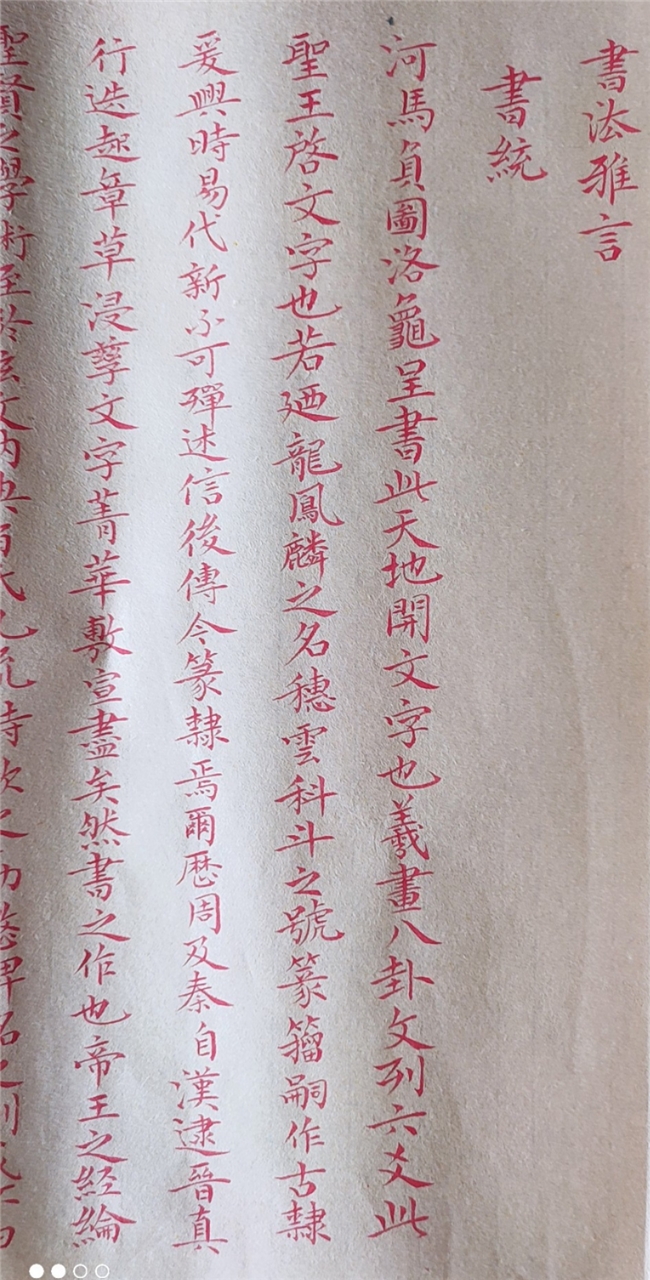 書法雅言
書統
河馬負圖洛龜呈書此天地開文字也羲畫八卦文列六爻此
聖王啓文字也若廼龍鳳麟之名穗雲科斗之號篆籀嗣作古隸
爰興時易代新不可殫述信後傳今篆隸焉爾厯周及秦自漢逮晉真
行迭起章草浸孳文字菁華敷宣盡矣然書之作也帝王之経綸
聖賢之學術至於玄文內典百氏九流詩歌之勸懲碑